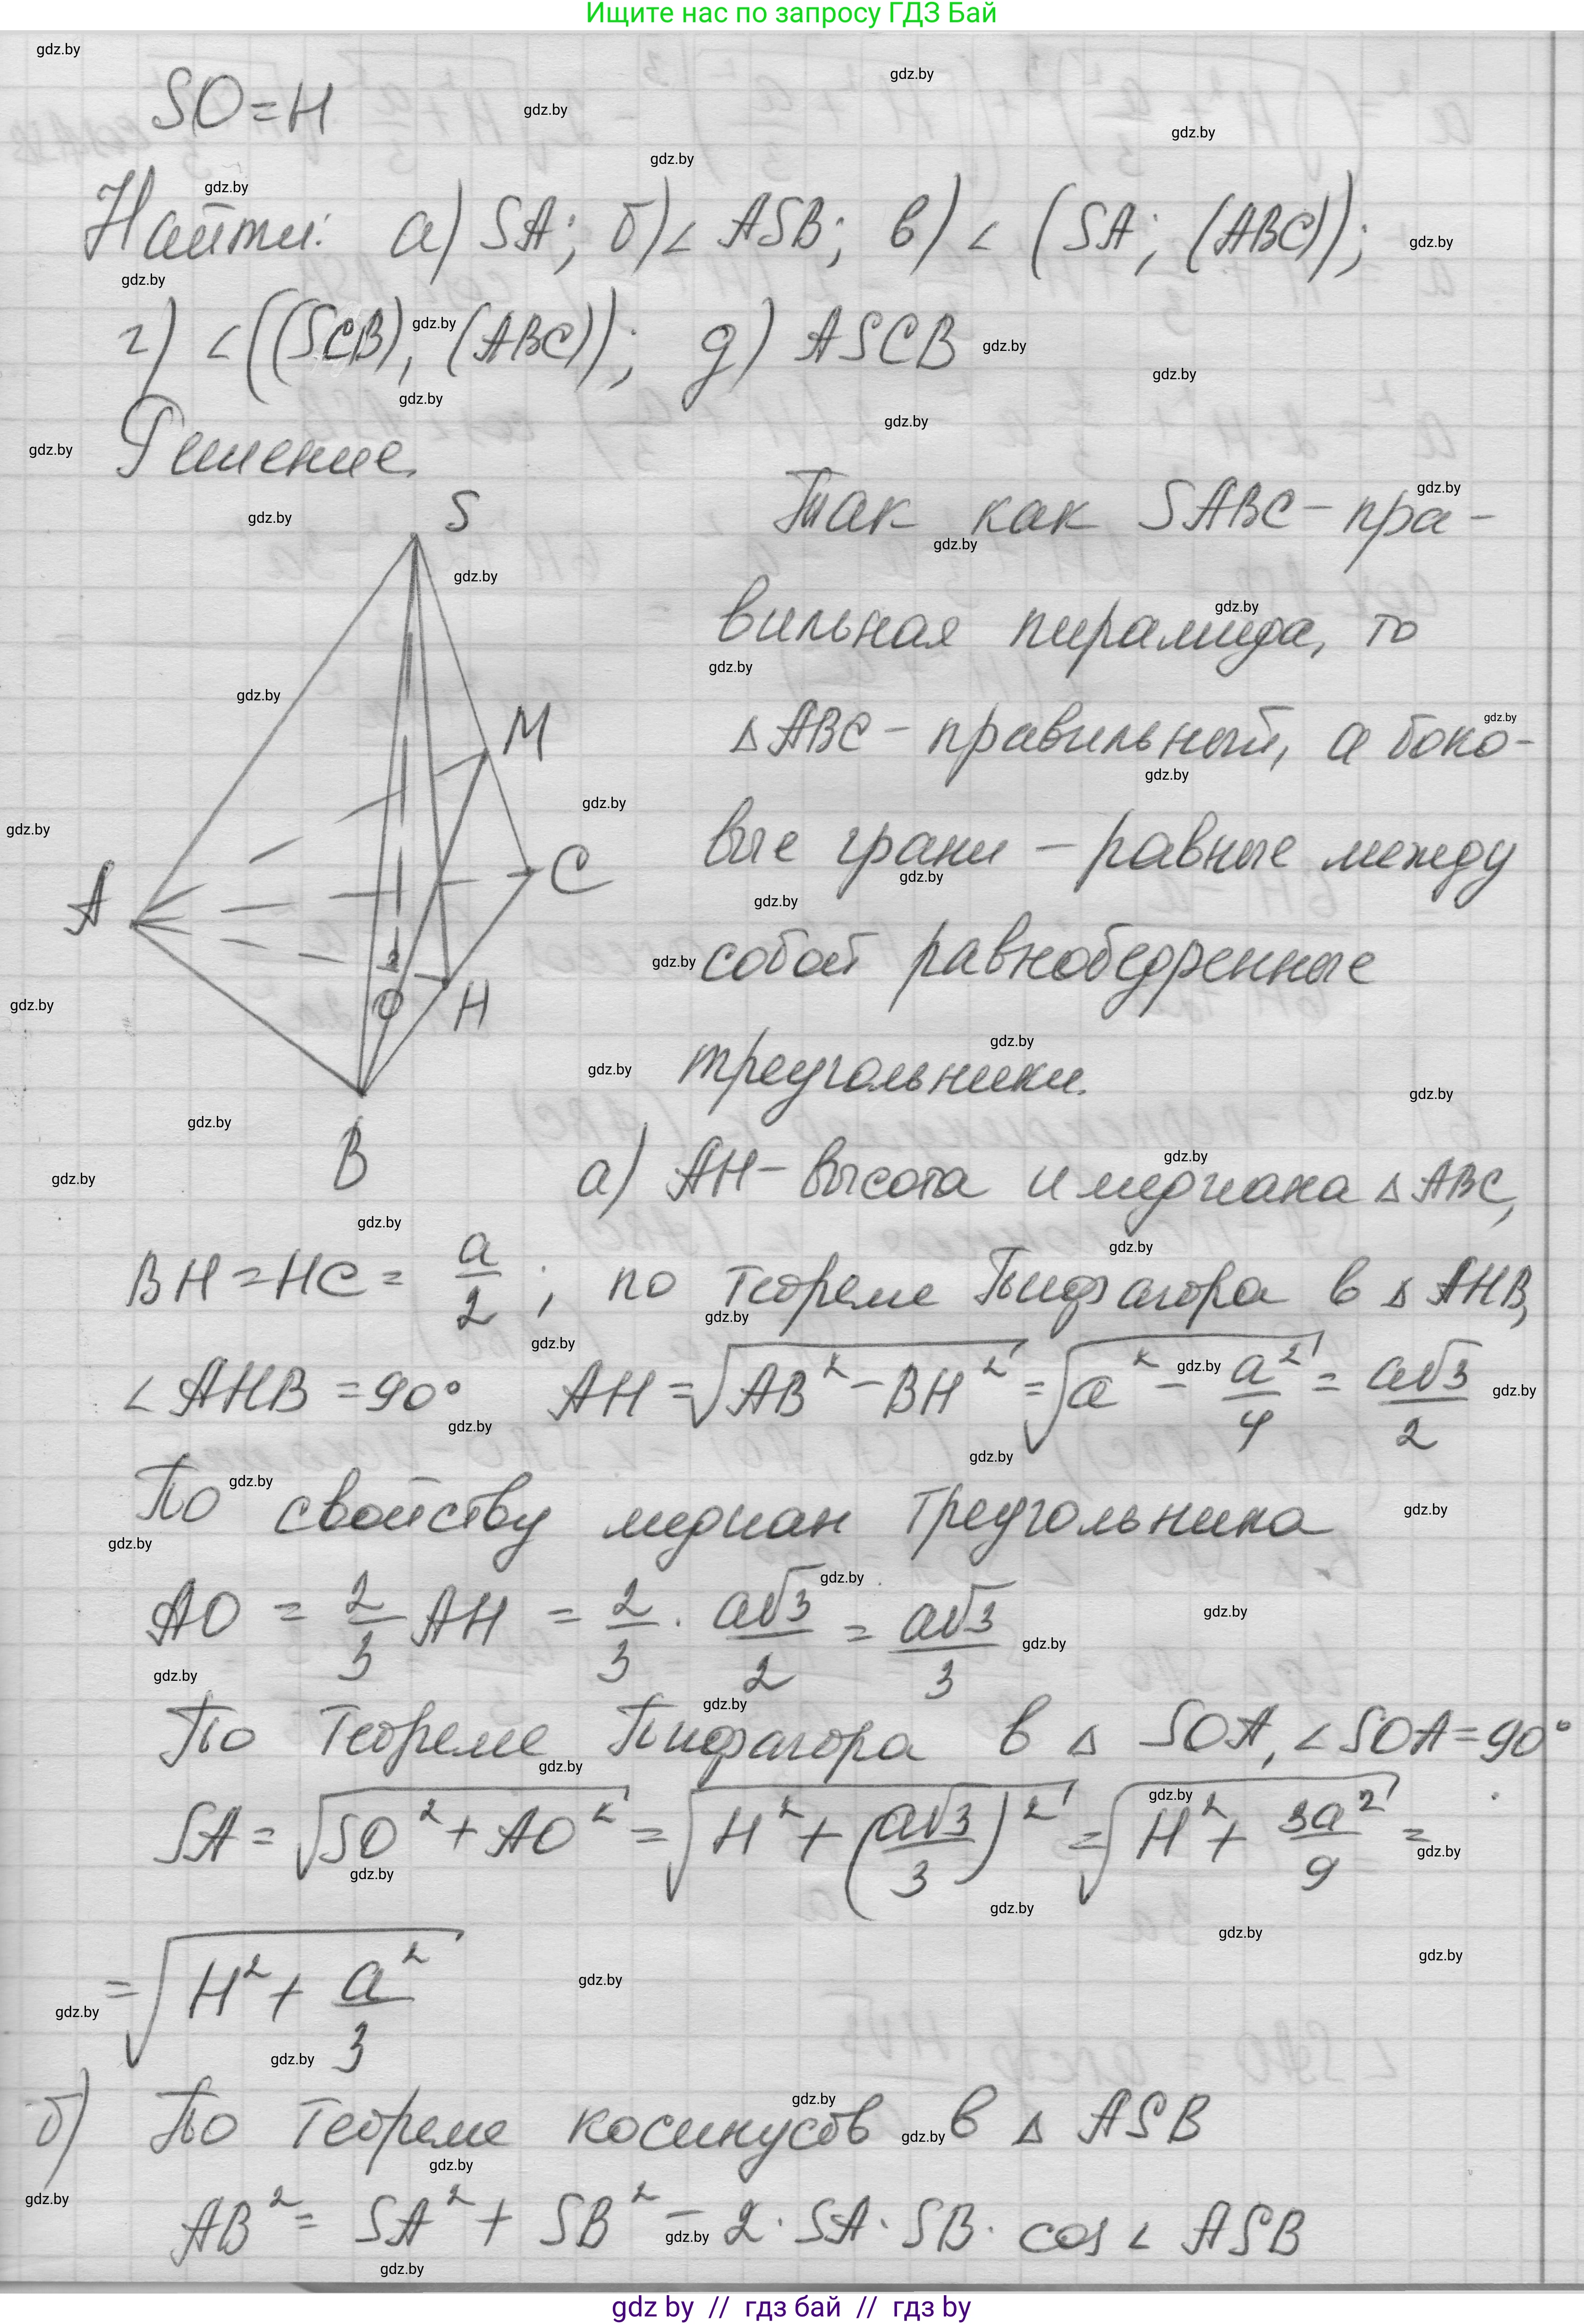 Ищите нас по запросу ГДЗ Бай
SO=H
Найти: а) SA; б) ∠ ASB; в) ∠ (SA; (ABC));
г) ∠((SCB), (ABC)); д) ASCB
Решение.
Так как SABC – пра-
вильная пирамида, то
△ABC – правильный, а боко-
вые грани – равные между
собой равнобедренные
треугольники.
S
M
C
A
O
H
B
а) AH – высота и медиана △ABC,
BH = HC = a/2; по теореме Пифагора в △AHB,
∠AHB = 90° AH = √(AB² – BH²) = √(a² – a²/4) = a√3/2
По свойству медиан треугольника
AO = 2/3 AH = 2/3 · a√3/2 = a√3/3
По теореме Пифагора в △ SOA, ∠SOA = 90°
SA = √(SO² + AO²) = √(H² + (a√3/3)²) = √(H² + 3a²/9) =
= √(H² + a²/3)
б) По теореме косинусов в △ ASB
AB² = SA² + SB² – 2 · SA · SB · cos ∠ ASB
gdz by // гдз бай // гдз by